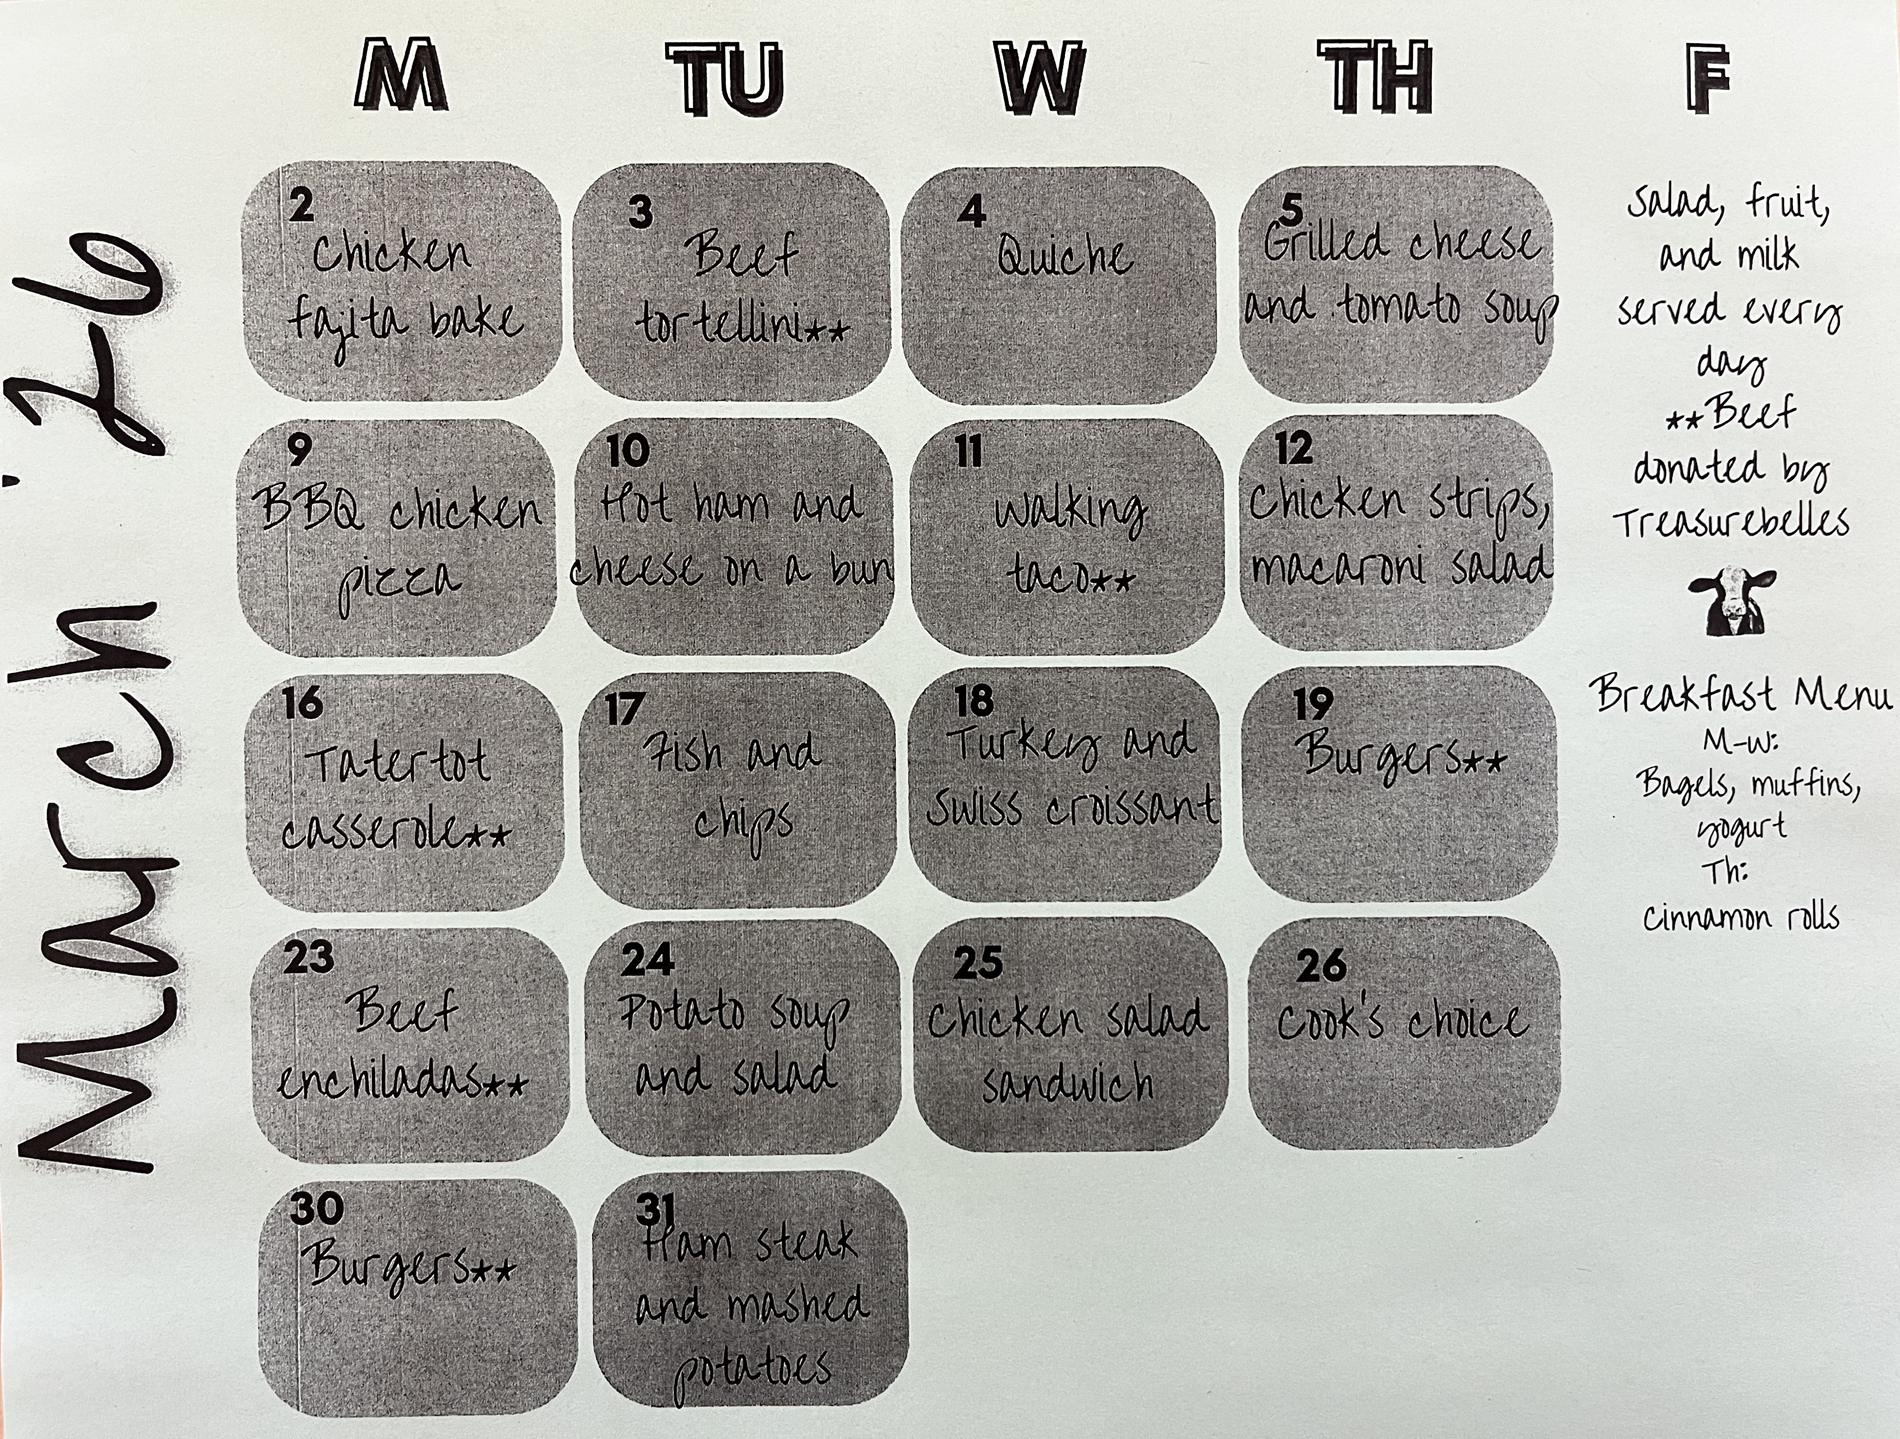 March '26
M TU W TH F
2
Chicken
fajita bake
3
Beef
tortellini**
4
Quiche
5
Grilled cheese
and tomato soup
9
BBQ chicken
pizza
10
Hot ham and
cheese on a bun
11
Walking
taco**
12
Chicken strips,
macaroni salad
16
Tatertot
casserole**
17
Fish and
chips
18
Turkey and
Swiss croissant
19
Burgers**
23
Beef
enchiladas**
24
Potato soup
and salad
25
Chicken salad
sandwich
26
Cook's choice
30
Burgers**
31
Ham steak
and mashed
potatoes
Salad, fruit,
and milk
served every
day
**Beef
donated by
Treasurebelles
Breakfast Menu
M-W:
Bagels, muffins,
yogurt
Th:
Cinnamon rolls